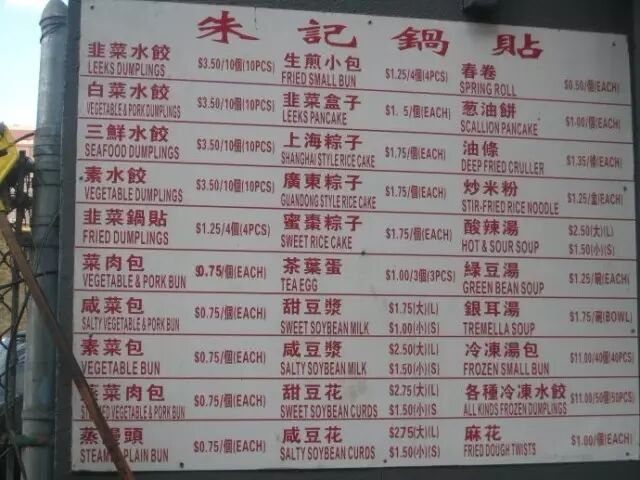 朱記鍋貼
韭菜水餃 $3.50/10個(10PCS)
LEEKS DUMPLINGS
白菜水餃 $3.50/10個(10PCS)
VEGETABLE & PORK DUMPLINGS
三鮮水餃 $3.50/10個(10PCS)
SEAFOOD DUMPLINGS
素水餃 $3.50/10個(10PCS)
VEGETABLE DUMPLINGS
韭菜鍋貼 $1.25/4個(4PCS)
FRIED DUMPLINGS
菜肉包 $0.75/個(EACH)
VEGETABLE & PORK BUN
咸菜包 $0.75/個(EACH)
SALTY VEGETABLE & PORK BUN
素菜包 $0.75/個(EACH)
VEGETABLE BUN
菜肉包 $0.75/個(EACH)
VEGETABLE & PORK BUN
蒸饅頭 $0.75/個(EACH)
PLAIN BUN
生煎小包 $1.25/4個(4PCS)
FRIED SMALL BUN
韭菜盒子 $1. 5/個(EACH)
LEEKS PANCAKE
上海粽子 $1.75/個(EACH)
SHANGHAI STYLE RICE CAKE
廣東粽子 $1.75/個(EACH)
GUANDONG STYLE RICE CAKE
蜜棗粽子 $1.75/個(EACH)
SWEET RICE CAKE
茶葉蛋 $1.00/3個(3PCS)
TEA EGG
甜豆漿 $1.75(大)(L)
SWEET SOYBEAN MILK $1.00(小)(S)
咸豆漿 $2.50(大)(L)
SALTY SOYBEAN MILK $1.50(小)(S)
甜豆花 $2.75(大)(L)
SWEET SOYBEAN CURDS $1.50(小)(S)
咸豆花 $2.75(大)(L)
SALTY SOYBEAN CURDS $1.50(小)(S)
春卷 $0.50/(EACH)
SPRING ROLL
葱油餅 $1.00/(EACH)
SCALLION PANCAKE
油條 $1.35/條(EACH)
DEEP FRIED CRULLER
炒米粉 $1.25/盒(EACH)
STIR-FRIED RICE NOODLE
酸辣湯 $2.50(大)(L)
HOT & SOUR SOUP $1.50(小)(S)
綠豆湯 $1.25/碗(EACH)
GREEN BEAN SOUP
銀耳湯 $1.75/碗(BOWL)
TREMELLA SOUP
冷凍湯包 $11.00/40個(40PCS)
FROZEN SMALL BUN
各種冷凍水餃 $11.00/50個(50PCS)
ALL KINDS FROZEN DUMPLINGS
麻花 $1.00/個(EACH)
FRIED DOUGH TWISTS